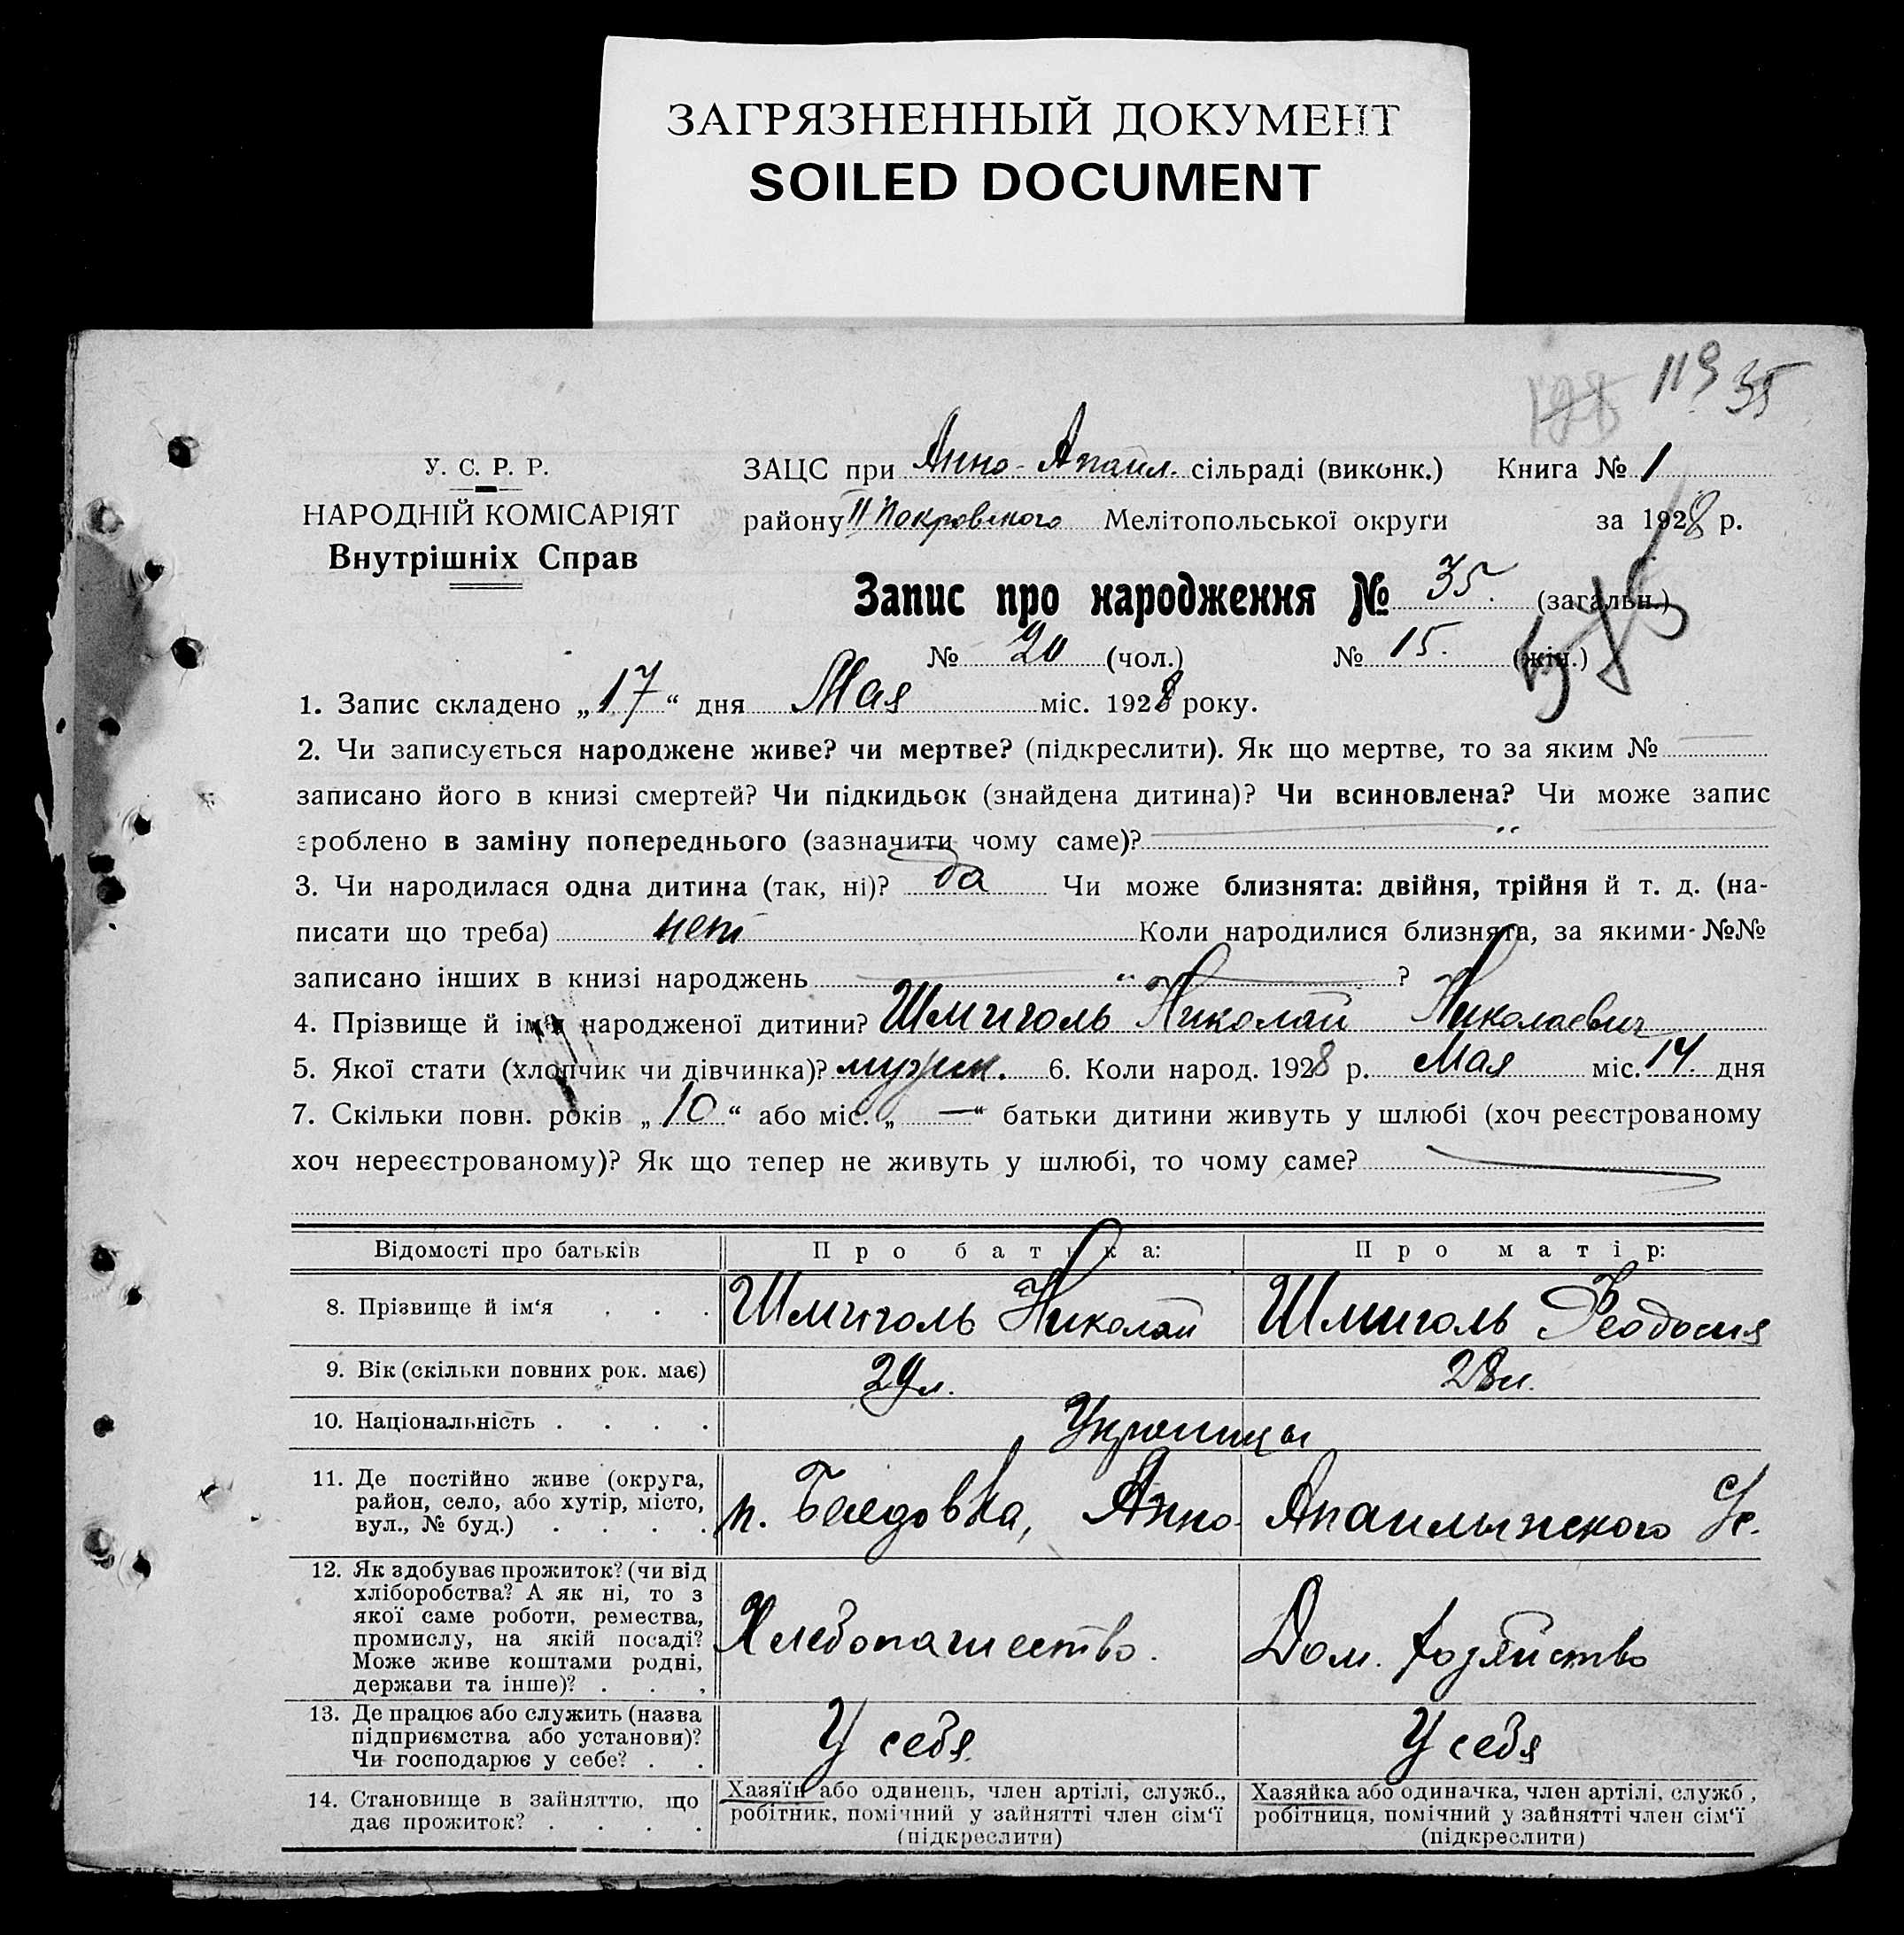 ЗАГРЯЗНЕННЫЙ ДОКУМЕНТ
SOILED DOCUMENT
119 35
У. С. Р. Р.
НАРОДНІЙ КОМІСАРІЯТ
Внутрішніх Справ
ЗАЦС при Анно-Апаил. сільраді (виконк.) Книга № 1
району II Покровского Мелітопольської округи за 1928 р.
Запис про народження № 35. (загальн.)
№ 20 (чол.) № 15. (жін.)
1. Запис складено „17“ дня Мая міс. 1928 року.
2. Чи записується народжене живе? чи мертве? (підкреслити). Як що мертве, то за яким №
записано його в книзі смертей? Чи підкидьок (знайдена дитина)? Чи всиновлена? Чи може запис
зроблено в заміну попереднього (зазначити чому саме)?
3. Чи народилася одна дитина (так, ні)? да Чи може близнята: двійня, трійня й т. д. (на-
писати що треба) нет Коли народилися близнята, за якими №№
записано інших в книзі народжень ?
4. Прізвище й ім'я народженої дитини? Шмиголь Николай Николаевич
5. Якої стати (хлопчик чи дівчинка)? мужск. 6. Коли народ. 1928 р. Мая міс. 14. дня
7. Скільки повн. років „10“ або міс. „—“ батьки дитини живуть у шлюбі (хоч реєстрованому
хоч нереєстрованому)? Як що тепер не живуть у шлюбі, то чому саме?
Відомості про батьків Про батька: Про матір:
8. Прізвище й ім‘я . . . Шмиголь Николай Шмиголь Феодосия
9. Вік (скільки повних рок. має) 29 л. 28 л.
10. Національність . . . . Украинцы
11. Де постійно живе (округа,
район, село, або хутір, місто,
вул., № буд.) . . . .
Анно-
12. Як здобуває прожиток? (чи від
хліборобства? А як ні, то з
якої саме роботи, ремества,
промислу, на якій посаді?
Може живе коштами родні,
держави та інше)? . . .
Хлебопашество. Дом. хозяйство
13. Де працює або служить (назва
підприємства або установи)?
Чи господарює у себе? . .
У себя. У себя
14. Становище в зайняттю, що
дає прожиток? . . . .
Хазяїн або одинець, член артілі, служб.,
робітник, помічний у зайнятті член сім‘ї
(підкреслити)
Хазяйка або одиначка, член артілі, служб.,
робітниця, помічний у зайнятті член сім‘ї
(підкреслити)